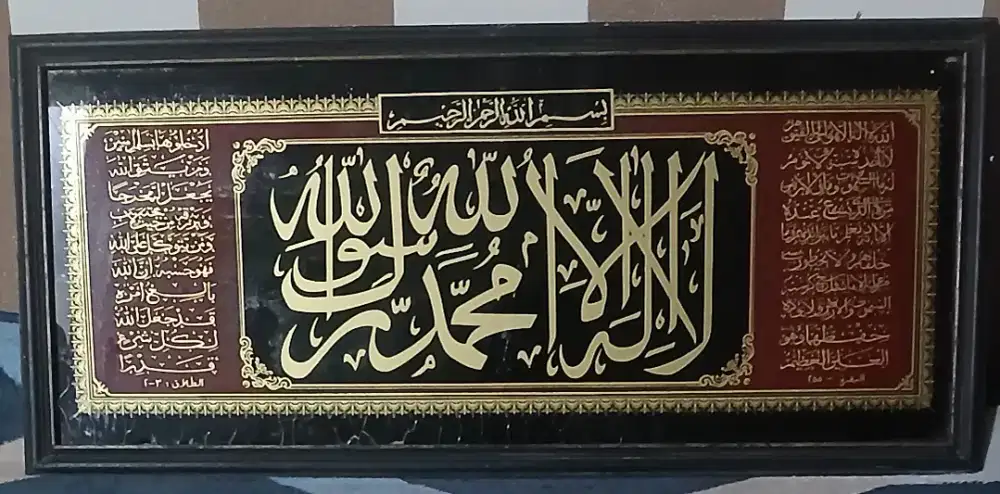 بسم الله الرحمن الرحيم
لا إله إلا الله محمد رسول الله
الله لا اله الا هو الحي القيوم
لا تأخذه سنة ولا نوم
له ما في السموات وما في الارض
من ذا الذي يشفع عنده
الا باذنه يعلم ما بين ايديهم وما
خلفهم ولا يحيطون بشيء
من علمه الا بما شاء وسع كرسيه
السموات والارض ولا يؤده
حفظهما وهو
العلي العظيم
البقرة - ٢٥٥
ادخلوها بسلام آمنين
ومن يتق الله
يجعل له مخرجا
ويرزقه من حيث لا يحتسب
ومن يتوكل على الله
فهو حسبه إن الله
بالغ أمره
قد جعل الله
لكل شيء
قدرا
الطلاق : ٢-٣